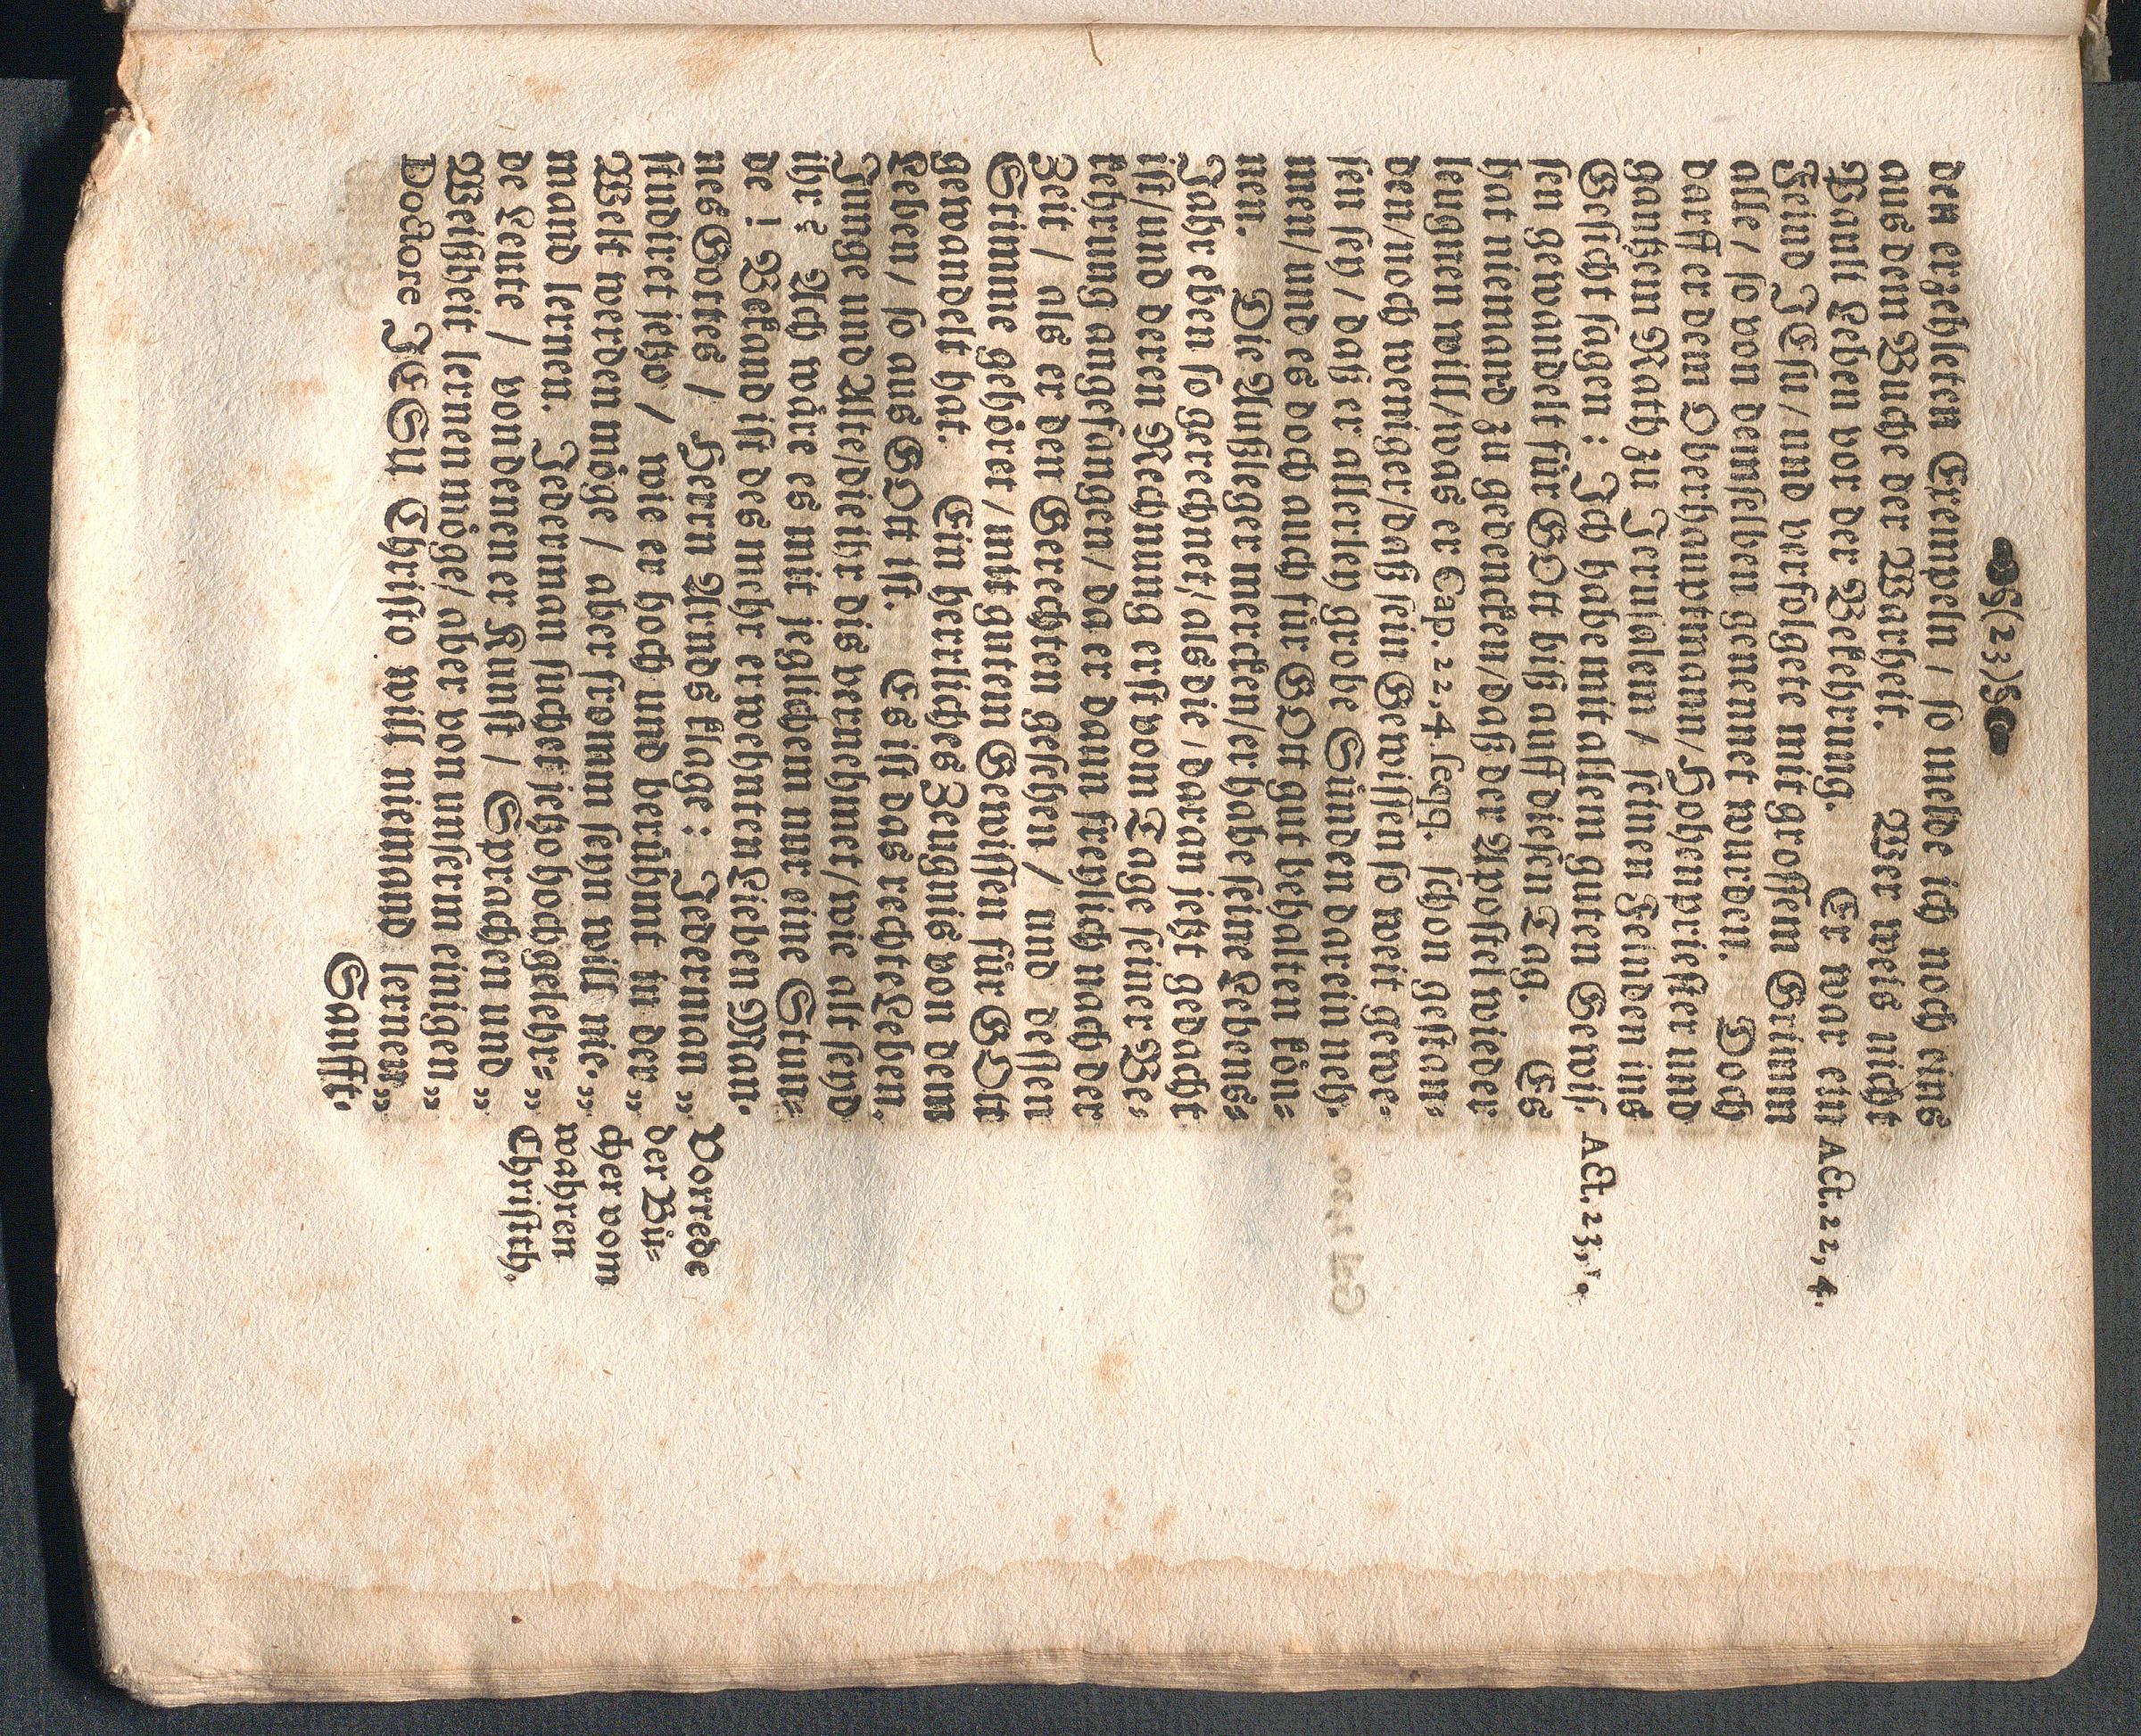 (23)
den erzehleten Exempeln / so melde ich noch eins
aus dem Buche der Warheit. Wer weis nicht
Pauli Leben vor der Bekehrung. Er war ein
Act. 22, 4.
Feind JEsu / und verfolgete mit grossem Grimm
alle / so von demselben genennet wurden. Doch
darff er dem Oberhauptmann / Hohenpriester und
gantzem Rath zu Jerusalem / seinen Feinden ins
Gesicht sagen: Ich habe mit allem guten Gewis-
Act. 23, 1.
sen gewandelt für GOtt biß auff diesen Tag. Es
hat niemand zu gedencken / daß der Apostel wieder
leugnen will / was er Cap. 22, 4. seqq. schon gestan-
den / noch weniger / daß sein Gewissen so weit gewe-
sen sey / daß er allerley grobe Sünden darein neh-
men / und es doch auch für GOtt gut behalten kön-
nen. Die Außleger mercken / er habe seine Lebens-
Jahr eben so gerechnet / als die / daran jetzt gedacht
ist / und deren Rechnung erst vom Tage seiner Be-
kehrung angefangen / da er dann freylich nach der
Zeit / als er den Gerechten gesehen / und dessen
Stimme gehöret / mit gutem Gewissen für GOtt
gewandelt hat. Ein herrliches Zeugnis von dem
Leben / so aus GOtt ist. Es ist das rechte Leben.
Junge und Alte / die ihr dis vernehmet / wie alt seyd
ihr? Ach wäre es mit jeglichem nur eine Stun-
de! Bekand ist des mehr erwehnten Lieben Man-
nes Gottes / Herrn Arnds klage: Jederman „
Vorrede
studiret jetzo / wie er hoch und berühmt in der „
der Bü-
Welt werden möge / aber fromm seyn will nie- „
cher vom
mand lernen. Jederman suchet jetzo hochgelehr- „
wahren
de Leute / von denen er Kunst / Sprachen und „
Christth.
Weißheit lernen möge / aber von unserm einigen „
Doctore JESu Christo will niemand lernen „
Sanfft-